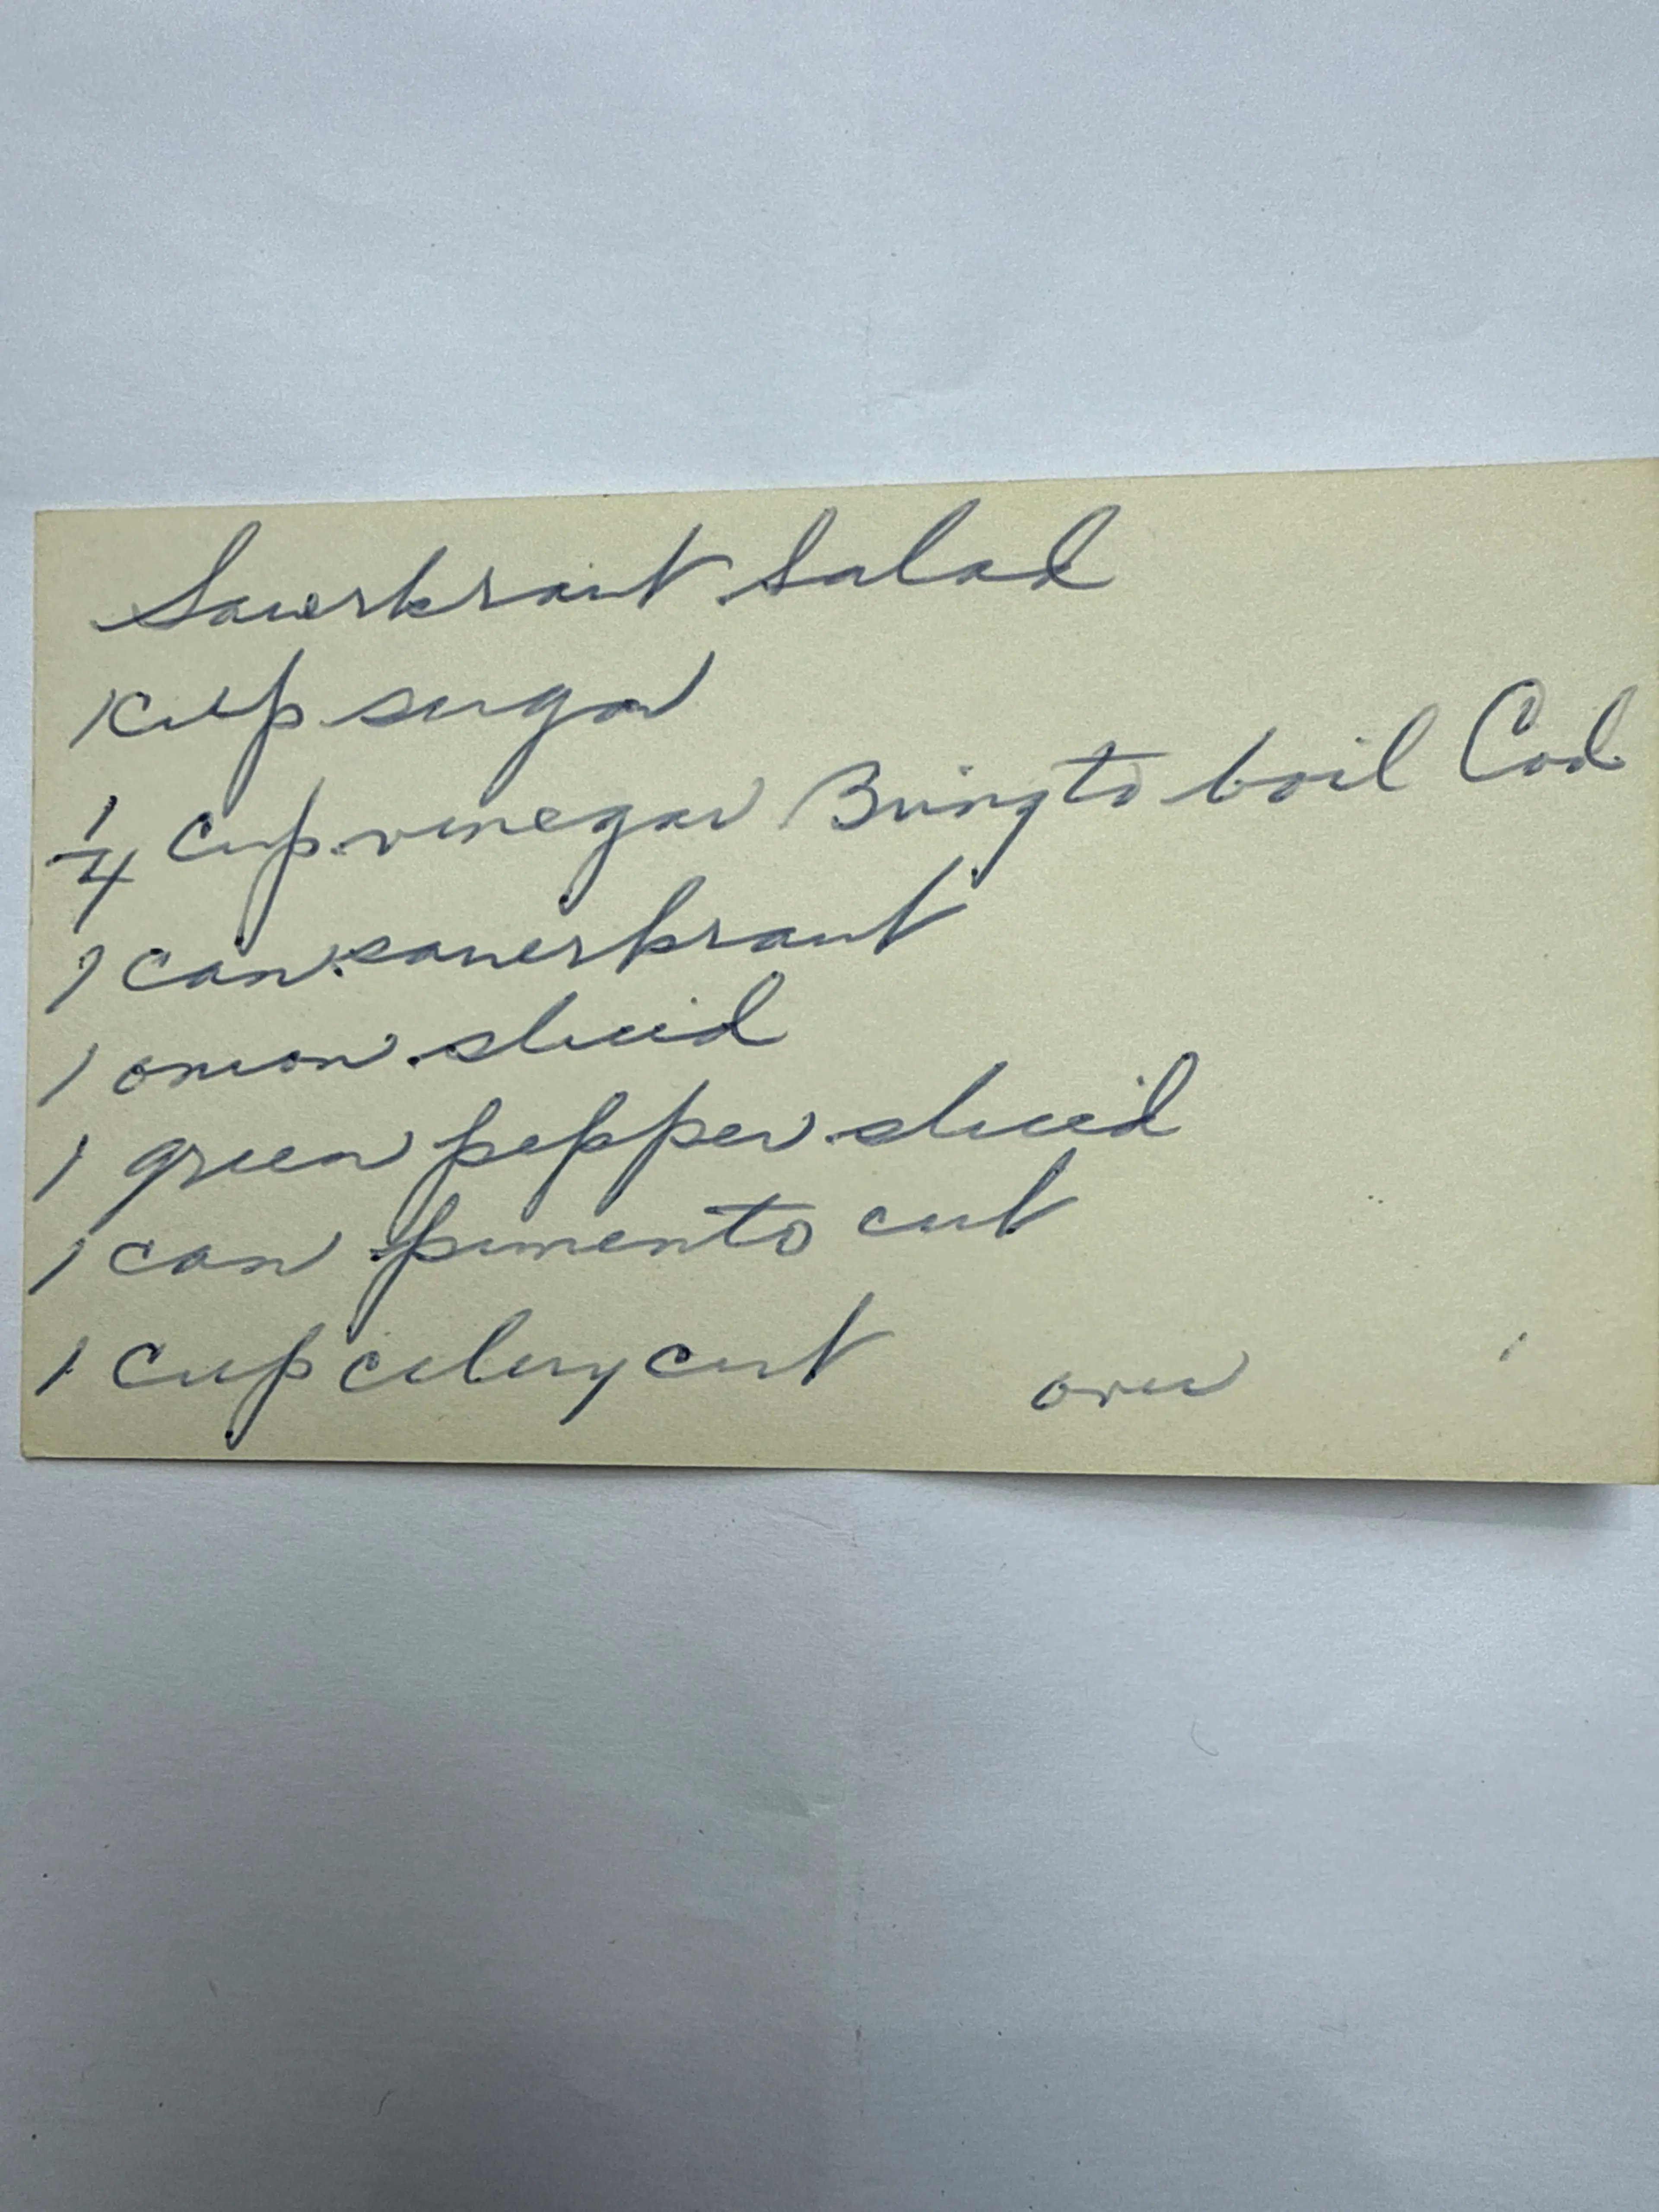 Sauerkraut Salad
1 cup sugar
1/4 cup vinegar Bring to boil Cool
1 can sauerkraut
1 onion sliced
1 green pepper sliced
1 can pimento cut
1 cup celery cut over